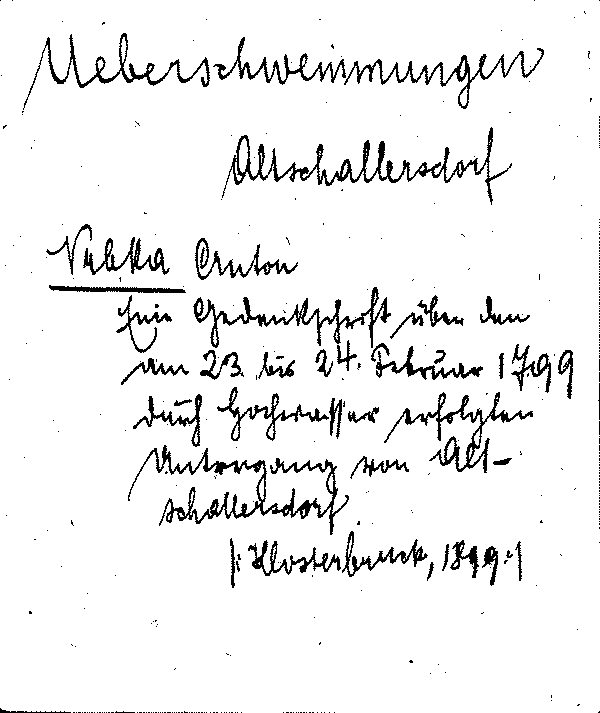 Ueberschwemmungen
Altschallersdorf
Vrbka Anton
Eine Gedenkschrift über den
am 23. bis 24. Februar 1799
durch Hochwasser erfolgten
Untergang von Alt-
schallersdorf.
/: Klosterbruck, 1899 :/